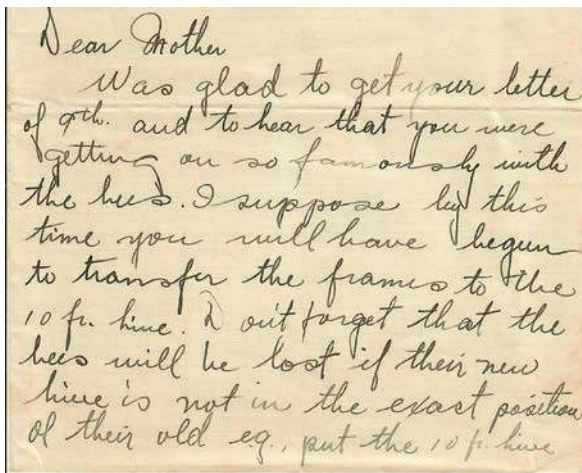 Dear Mother
Was glad to get your letter
of 9th. and to hear that you were
getting on so famously with
the bees. I suppose by this
time you will have begun
to transfer the frames to the
10 fr. hive. Don't forget that the
bees will be lost if their new
hive is not in the exact position
of their old e.g., put the 10 fr. hive